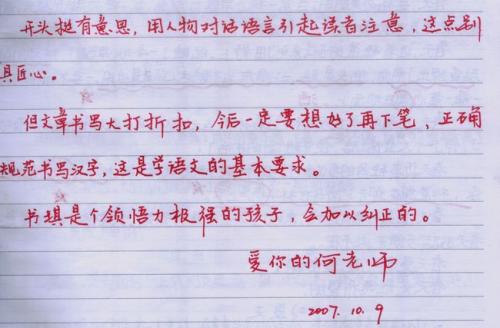 开头挺有意思,用人物对话语言引起读者注意,这点别
具匠心。
但文章书写大打折扣,今后一定要想好了再下笔,正确
规范书写汉字,这是学语文的基本要求。
书琪是个领悟力极强的孩子,会加以纠正的。
爱你的何老师
2007.10.9